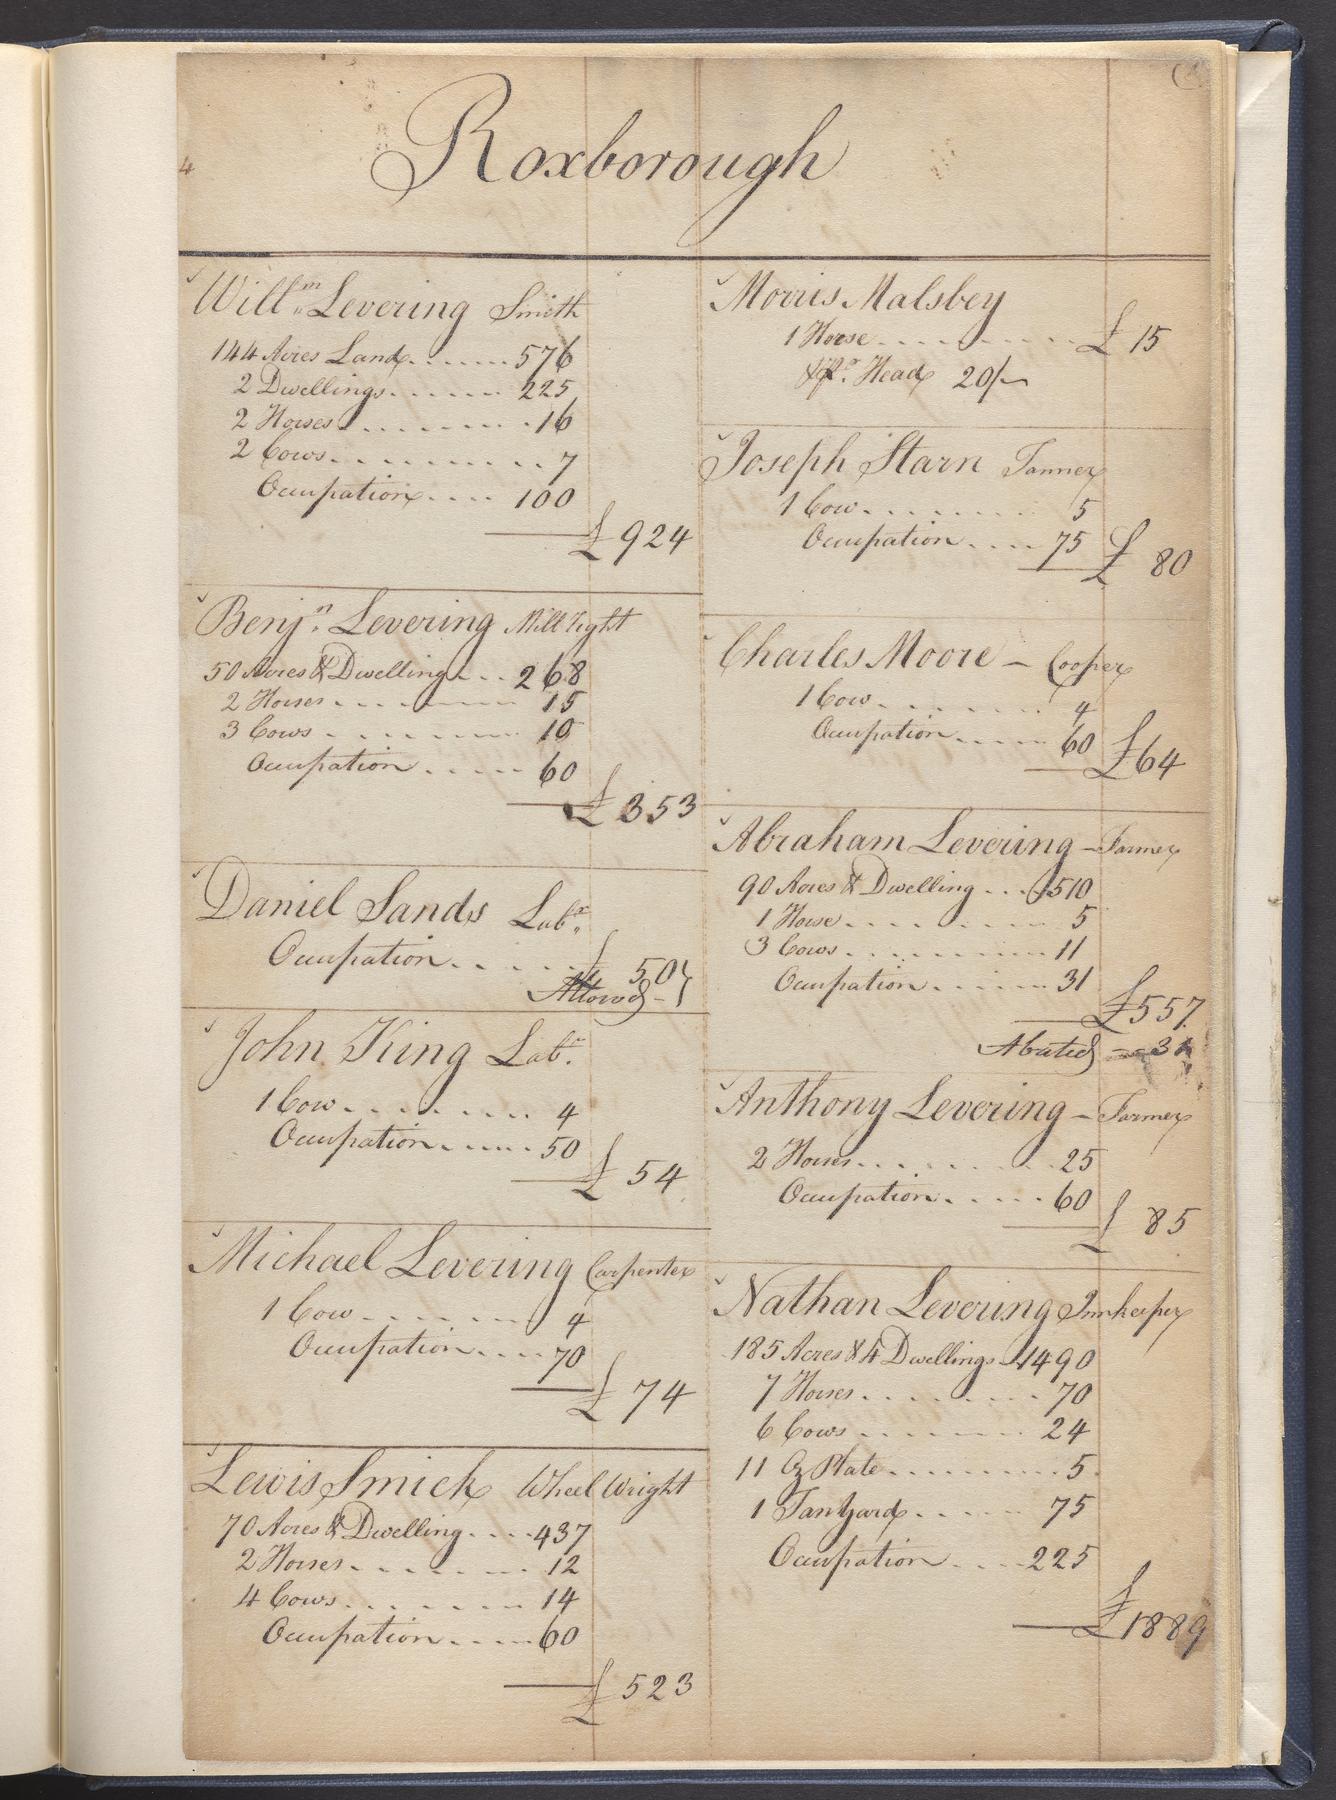 4
Roxborough
Will.m Levering Smith
144 Acres Land......576
2 Dwellings......225
2 Horses........16
2 Cows.........7
Occupation....100
£924
Benj.n Levering Mill right
50 Acres & Dwelling...268
2 Horses........15
3 Cows........10
Occupation.....60
£353
Daniel Sands Lab.r
Occupation......£50
Allowed
John King Lab.r
1 Cow........4
Occupation......50
£54
Michael Levering Carpenter
1 Cow.......4
Occupation....70
£74
Lewis Smick Wheel Wright
70 Acres & Dwelling....437
2 Horses.......12
4 Cows.......14
Occupation.....60
£523
Morris Malsbey
1 Horse..........£15
Head 20/-
Joseph Starn Tanner
1 Cow........5
Occupation....75
£80
Charles Moore - Cooper
1 Cow.......4
Occupation.....60
£64
Abraham Levering - Farmer
90 Acres & Dwelling...510
1 Horse.........5
3 Cows.........11
Occupation......31
£557
Abated - 31
Anthony Levering - Farmer
2 Horses........25
Occupation.....60
£85
Nathan Levering Innkeeper
185 Acres & 4 Dwellings..1490
7 Horses.......70
6 Cows........24
11 Oz Plate.........5
1 Tan Yard......75
Occupation....225
£1889